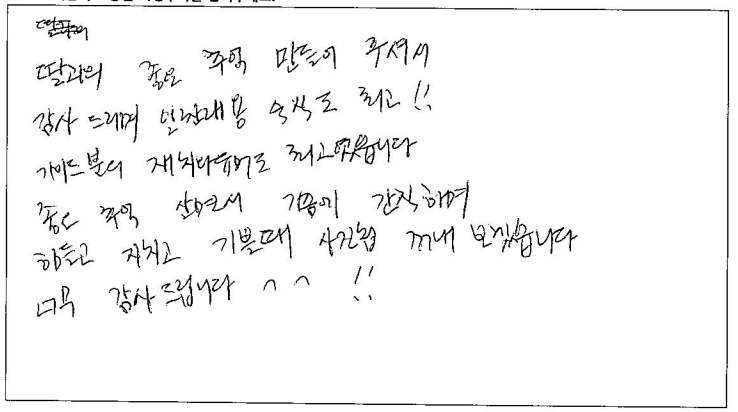 딸과의
딸과의 좋은 추억 만들어 주셔서
감사 드리며 일정내용 숙식도 최고!!
가이드분의 재치다 최고였습니다
좋은 추억 살면서 가슴에 간직하며
힘들고 지치고 기쁠때 사진첩 꺼내 보겠습니다
너무 감사드립니다 ^ ^ !!